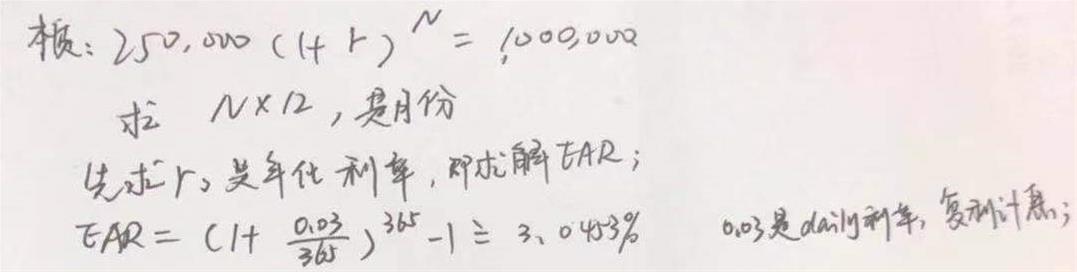 本质: 250,000 (1+r)^N = 1,000,000
求 N×12, 是月份
先求r, 是年化利率, 即求解EAR;
EAR = (1+ 0.03/365)^365 -1 ≐ 3.0453% 0.03是daily利率, 复利计息;